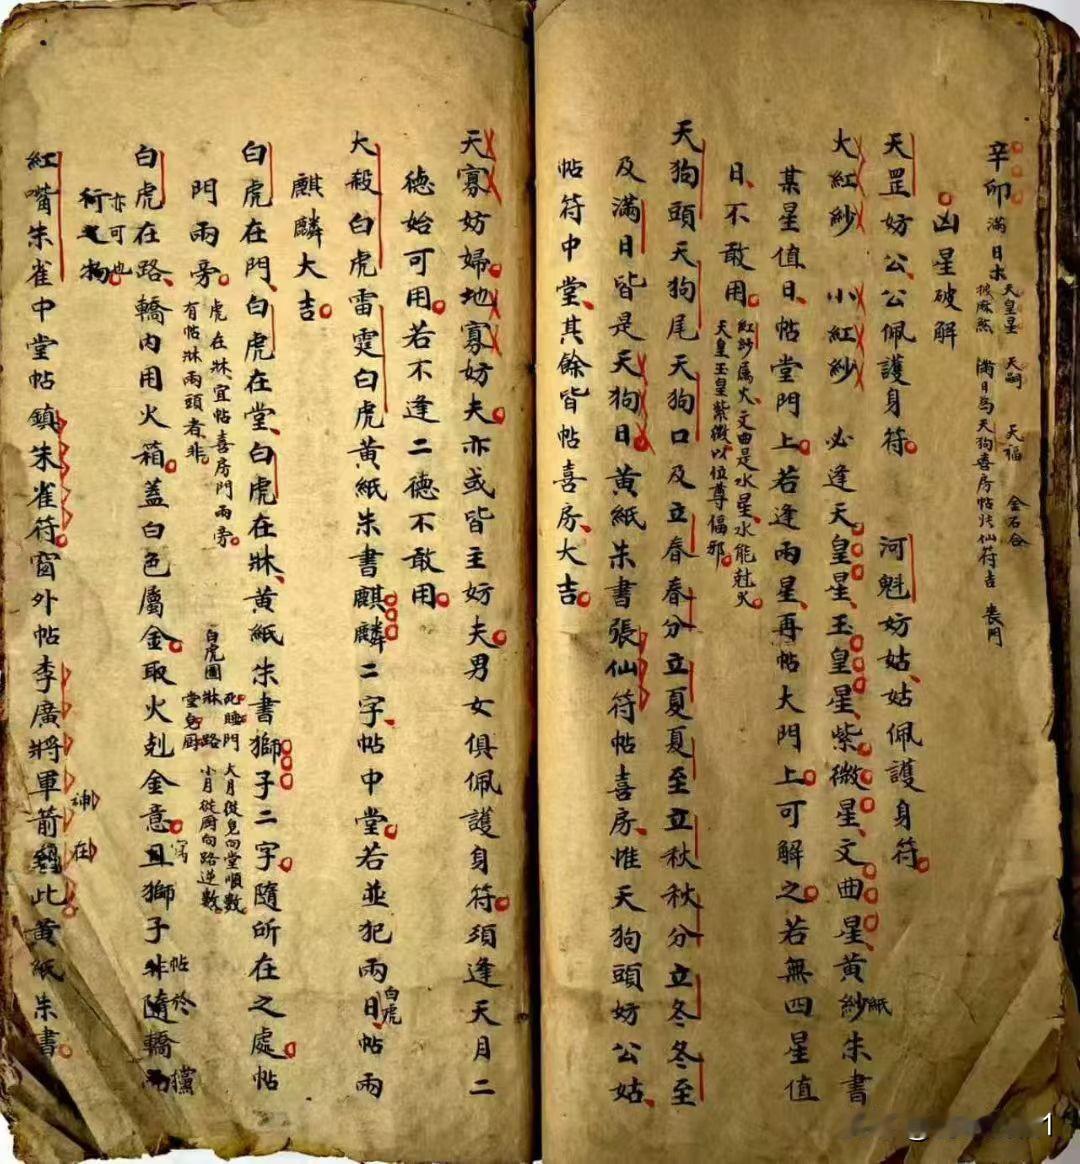 辛卯 滿日求 天皇星 天嗣 天福 金石合
披麻煞 滿日為天狗喜房帖張仙符吉 喪門
凶星破解
天罡妨公公佩護身符 河魁妨姑姑佩護身符
大紅紗 小紅紗 必逢天皇星玉皇星紫微星文曲星黃紗紙朱書
某星值日帖堂門上若逢兩星再帖大門上可解之若無四星值
日不敢用 紅紗爲火文曲是水星水能尅火
天皇玉皇紫微以位尊偪邪
天狗頭天狗尾天狗口及立春春分立夏夏至立秋秋分立冬冬至
及滿日皆是天狗日黃紙朱書張仙符帖喜房惟天狗頭妨公姑
帖符中堂其餘皆帖喜房大吉
天寡妨婦地寡妨夫亦或皆主妨夫男女俱佩護身符須逢天月二
德始可用若不逢二德不敢用
大殺白虎雷霆白虎黃紙朱書麒麟二字帖中堂若並犯兩日白虎帖兩
麒麟大吉
白虎在門白虎在堂白虎在牀黃紙朱書獅子二字隨所在之處帖
門兩旁 虎在牀宜帖喜房門兩旁
有帖牀兩頭者非
白虎圖 死睡門 大月從皃向堂順數
牀路
堂皃厨 小月從厨向路逆數
白虎在路轎內用火箱蓋白色屬金取火剋金意且寫獅子非帖於隨轎
亦可也
紅嘴朱雀中堂帖鎮朱雀符窗外帖李廣將軍箭神在此黃紙朱書